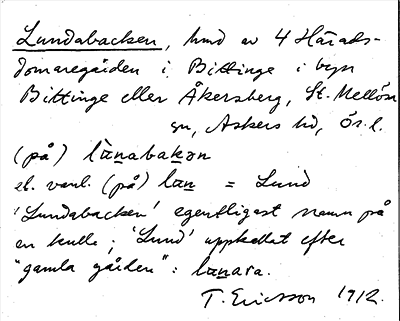 Lundabacken, hmd av 4 Härads-
domaregården i Bittinge i byn
Bittinge eller Åkersberg, St. Mellösa
sn, Askers hd, Ös.l.
(på) lànabakɷn
el. vanl. (på) lɷn = Lund
'Lundabacken' egentligast namn på
en kulle; 'Lund' uppkallat efter
"gamla gården": lɷnara.
T. Ericsson 1912.